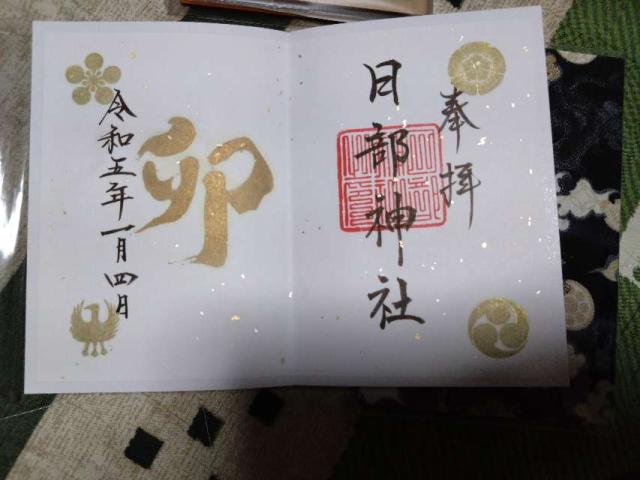 奉拝
日部神社
卯
令和五年一月四日